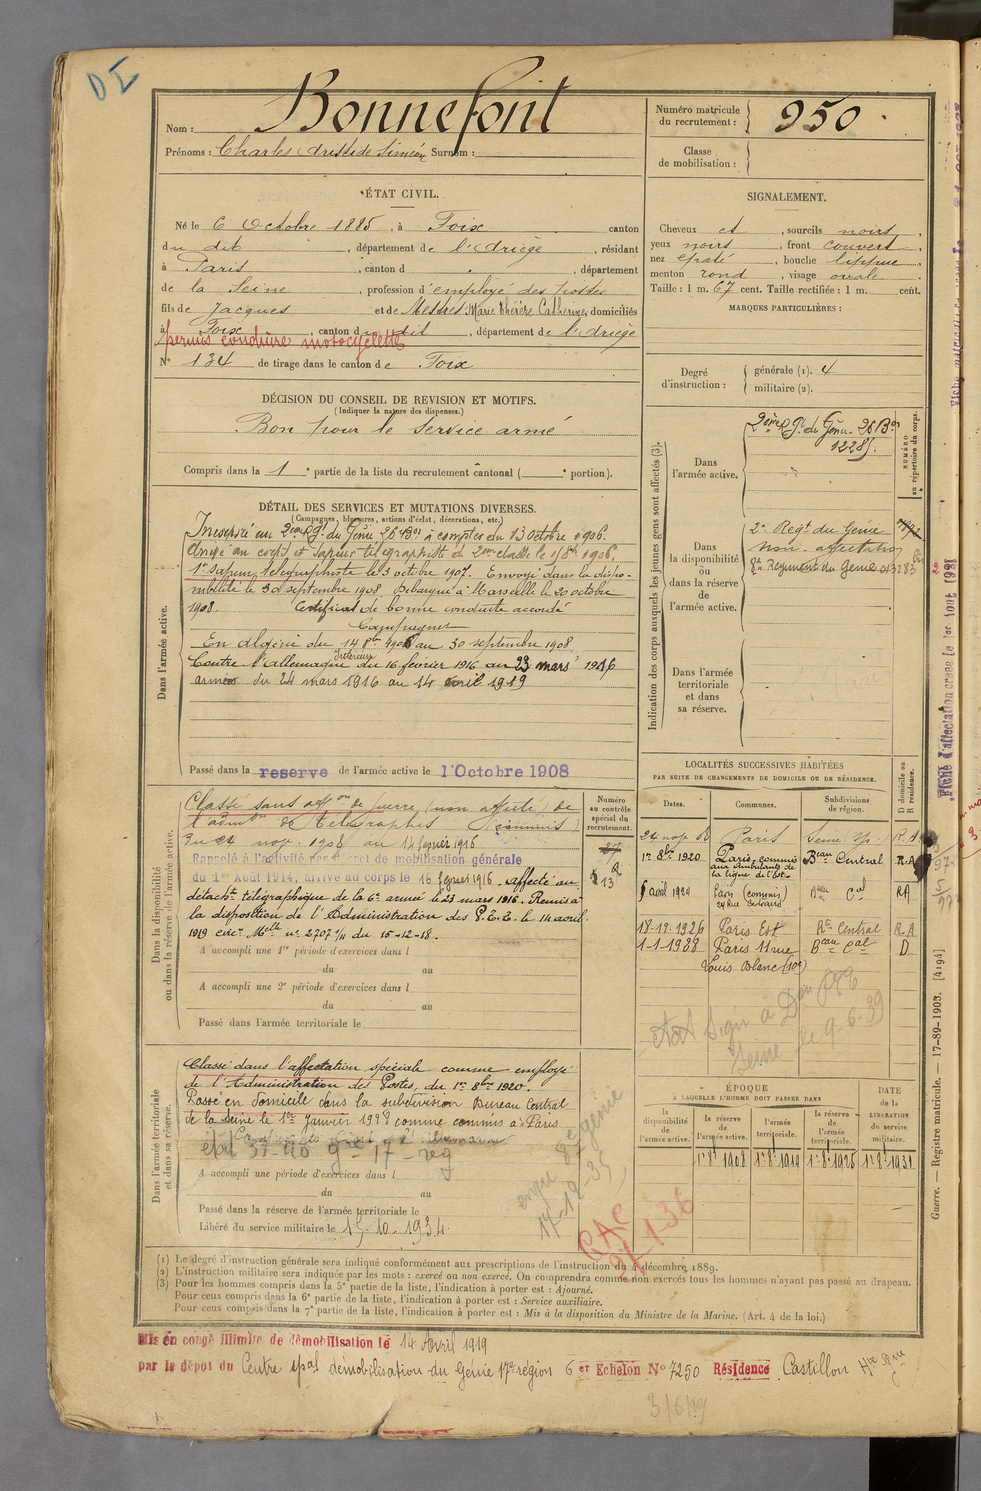 DE
Nom : Bonnefont
Prénoms : Charles Aristide Siméon Surnom :
Numéro matricule du recrutement : 950
Classe de mobilisation :
ÉTAT CIVIL.
Né le 6 Octobre 1885, à Foix canton
du dit, département de l'Ariège, résidant
à Paris, canton d , département
de la Seine, profession d'employé des postes
fils de Jacques et de Mestres Marie Thérèse Catherine, domiciliés
à Foix, canton du dit, département de l'Ariège
permis conduire motocyclette
N° 134 de tirage dans le canton de Foix
SIGNALEMENT.
Cheveux et, sourcils noirs,
yeux noirs, front couvert,
nez épaté, bouche lippue,
menton rond, visage ovale.
Taille : 1 m. 67 cent. Taille rectifiée : 1 m. cent.
MARQUES PARTICULIÈRES :
Degré d'instruction : générale (1). 4
militaire (2).
DÉCISION DU CONSEIL DE REVISION ET MOTIFS.
(Indiquer la nature des dispenses.)
Bon pour le Service armé
Compris dans la 1e partie de la liste du recrutement cantonal ( e portion).
DÉTAIL DES SERVICES ET MUTATIONS DIVERSES.
(Campagnes, blessures, actions d'éclat, décorations, etc.)
Dans l'armée active.
Incorporé au 2ème Rgt du Génie 26 Bon à compter du 13 octobre 1906.
Arrivé au corps et sapeur télégraphiste de 2eme classe le
1er sapeur télégraphiste le 3 octobre 1907. Envoyé dans la dispo-
nibilité le 30 septembre 1908. Débarqué à Marseille le 20 octobre
1908. Certificat de bonne conduite accordé
Campagnes
En Algérie du 14 8bre 1906 au 30 septembre 1908
Contre l'Allemagne Intérieur du 16 février 1916 au 23 mars 1916
armées du 24 mars 1916 au 14 avril 1919
Passé dans la reserve de l'armée active le 1 Octobre 1908
Indication des corps auxquels les jeunes gens sont affectés (3).
NUMÉRO au répertoire du corps.
Dans l'armée active.
2ème Rgt du Génie 26 Bon
12285.
Dans la disponibilité ou dans la réserve de l'armée active.
2e Regt du Génie
Non affectation
8e Régiment du Génie 013283
Dans l'armée territoriale et dans sa réserve.
Dans la disponibilité ou dans la réserve de l'armée active.
Classé sans affon de guerre (non affecté) de
l'admon de Télégraphes (commis)
Du 24 nov. 1908 au 14 février 1916
Rappelé à l'activité par décret de mobilisation générale
du 1er Août 1914, arrivé au corps le 16 février 1916. Affecté au
détacht télégraphique de la 6e armée le 23 mars 1916. Remis à
la disposition de l'Administration des P.T.T. le 14 avril
1919 circ. Melle n° 2707 1/4 du 15-12-18.
A accompli une 1re période d'exercices dans l
du au
A accompli une 2e période d'exercices dans l
du au
Passé dans l'armée territoriale le
Numéro au contrôle spécial du recrutement.
27
13
LOCALITÉS SUCCESSIVES HABITÉES
PAR SUITE DE CHANGEMENTS DE DOMICILE OU DE RÉSIDENCE.
Dates. Communes. Subdivisions de région. D domicile ou R résidence.
24 nov 08 Paris Seine R.A
1er 8bre 1920 Paris, commis aux ambulants de la ligne de l'Est Beau Central R.A
6 avril 1924 Paris (commis) Beau Cal RA
18-12-1926 Paris Est Central R-A
1-1-1928 Paris 11 rue Beau Cal D
Louis Blanc (10e)
Seine le 9-6-39
Dans l'armée territoriale et dans sa réserve.
Classé dans l'affectation spéciale comme employé
de l'Administration des Postes, du 1er 8bre 1920.
Passé en domicile dans la subdivision Bureau Central
de la Seine le 1er Janvier 1928 comme commis à Paris
A accompli une période d'exercices dans l
du au
Passé dans la réserve de l'armée territoriale le
Libéré du service militaire le 15-10-1934.
CAC
ÉPOQUE
À LAQUELLE L'HOMME DOIT PASSER DANS
la disponibilité de l'armée active. la réserve de l'armée active. l'armée territoriale. la réserve de l'armée territoriale. DATE de la LIBÉRATION du service militaire.
1er 8e 1908 1er 8e 1919 1er 8e 1925 1er 8e 1931
(1) Le degré d'instruction générale sera indiqué conformément aux prescriptions de l'instruction du 4 décembre 1889.
(2) L'instruction militaire sera indiquée par les mots : exercé ou non exercé. On comprendra comme non exercés tous les hommes n'ayant pas passé au drapeau.
(3) Pour les hommes compris dans la 5e partie de la liste, l'indication à porter est : Ajourné.
Pour ceux compris dans la 6e partie de la liste, l'indication à porter est : Service auxiliaire.
Pour ceux compris dans la 7e partie de la liste, l'indication à porter est : Mis à la disposition du Ministre de la Marine. (Art. 4 de la loi.)
Mis en congé illimité de démobilisation le 14 Avril 1919
par le dépot du Centre spal démobilisation du Génie 17e région 6 er Echelon N° 7250 Résidence Castillon
3/6/19
Guerre. — Registre matricule. — 17-89-1905. [4194]
Fiche d'affectation créée le 1er Août 1921